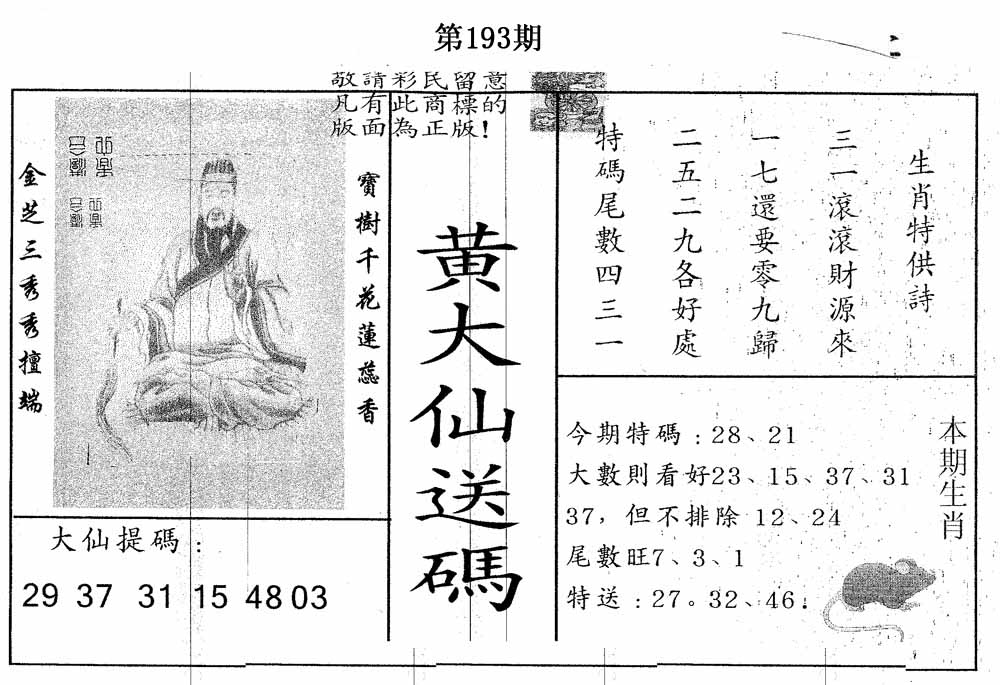 第193期
敬請彩民留意
凡有此商標的
版面為正版!
金芝三秀秀擅端
寶樹千花蓮蕊香
黃大仙送碼
生肖特供詩
三一滾滾財源來
一七還要零九歸
二五二九各好處
特碼尾數四三一
大仙提碼:
29 37 31 15 48 03
今期特碼:28、21
大數則看好23、15、37、31
37,但不排除 12、24
尾數旺7、3、1
特送:27。32、46.
本期生肖